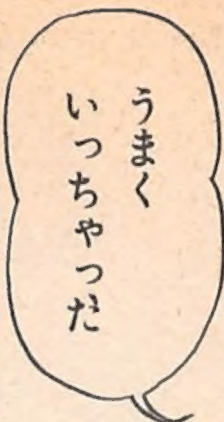 うまく
いっちゃった